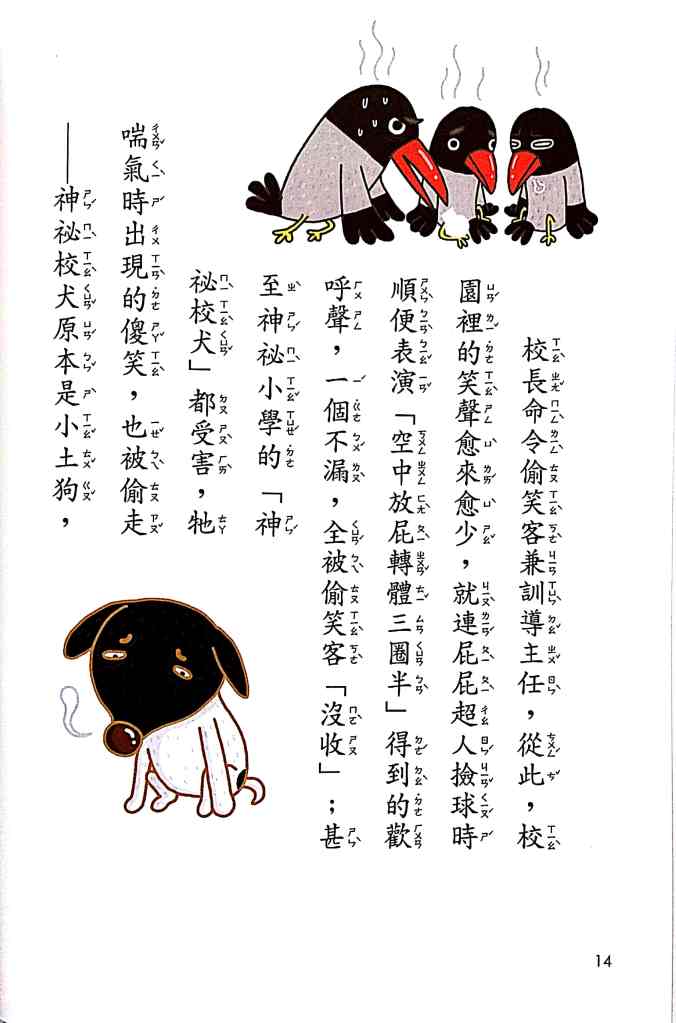 校長命令偷笑客兼訓導主任，從此，校
園裡的笑聲愈來愈少，就連屁屁超人撿球時
順便表演「空中放屁轉體三圈半」得到的歡
呼聲，一個不漏，全被偷笑客「沒收」；甚
至神祕小學的「神
祕校犬」都受害，牠
喘氣時出現的傻笑，也被偷走
——神祕校犬原本是小土狗，
14